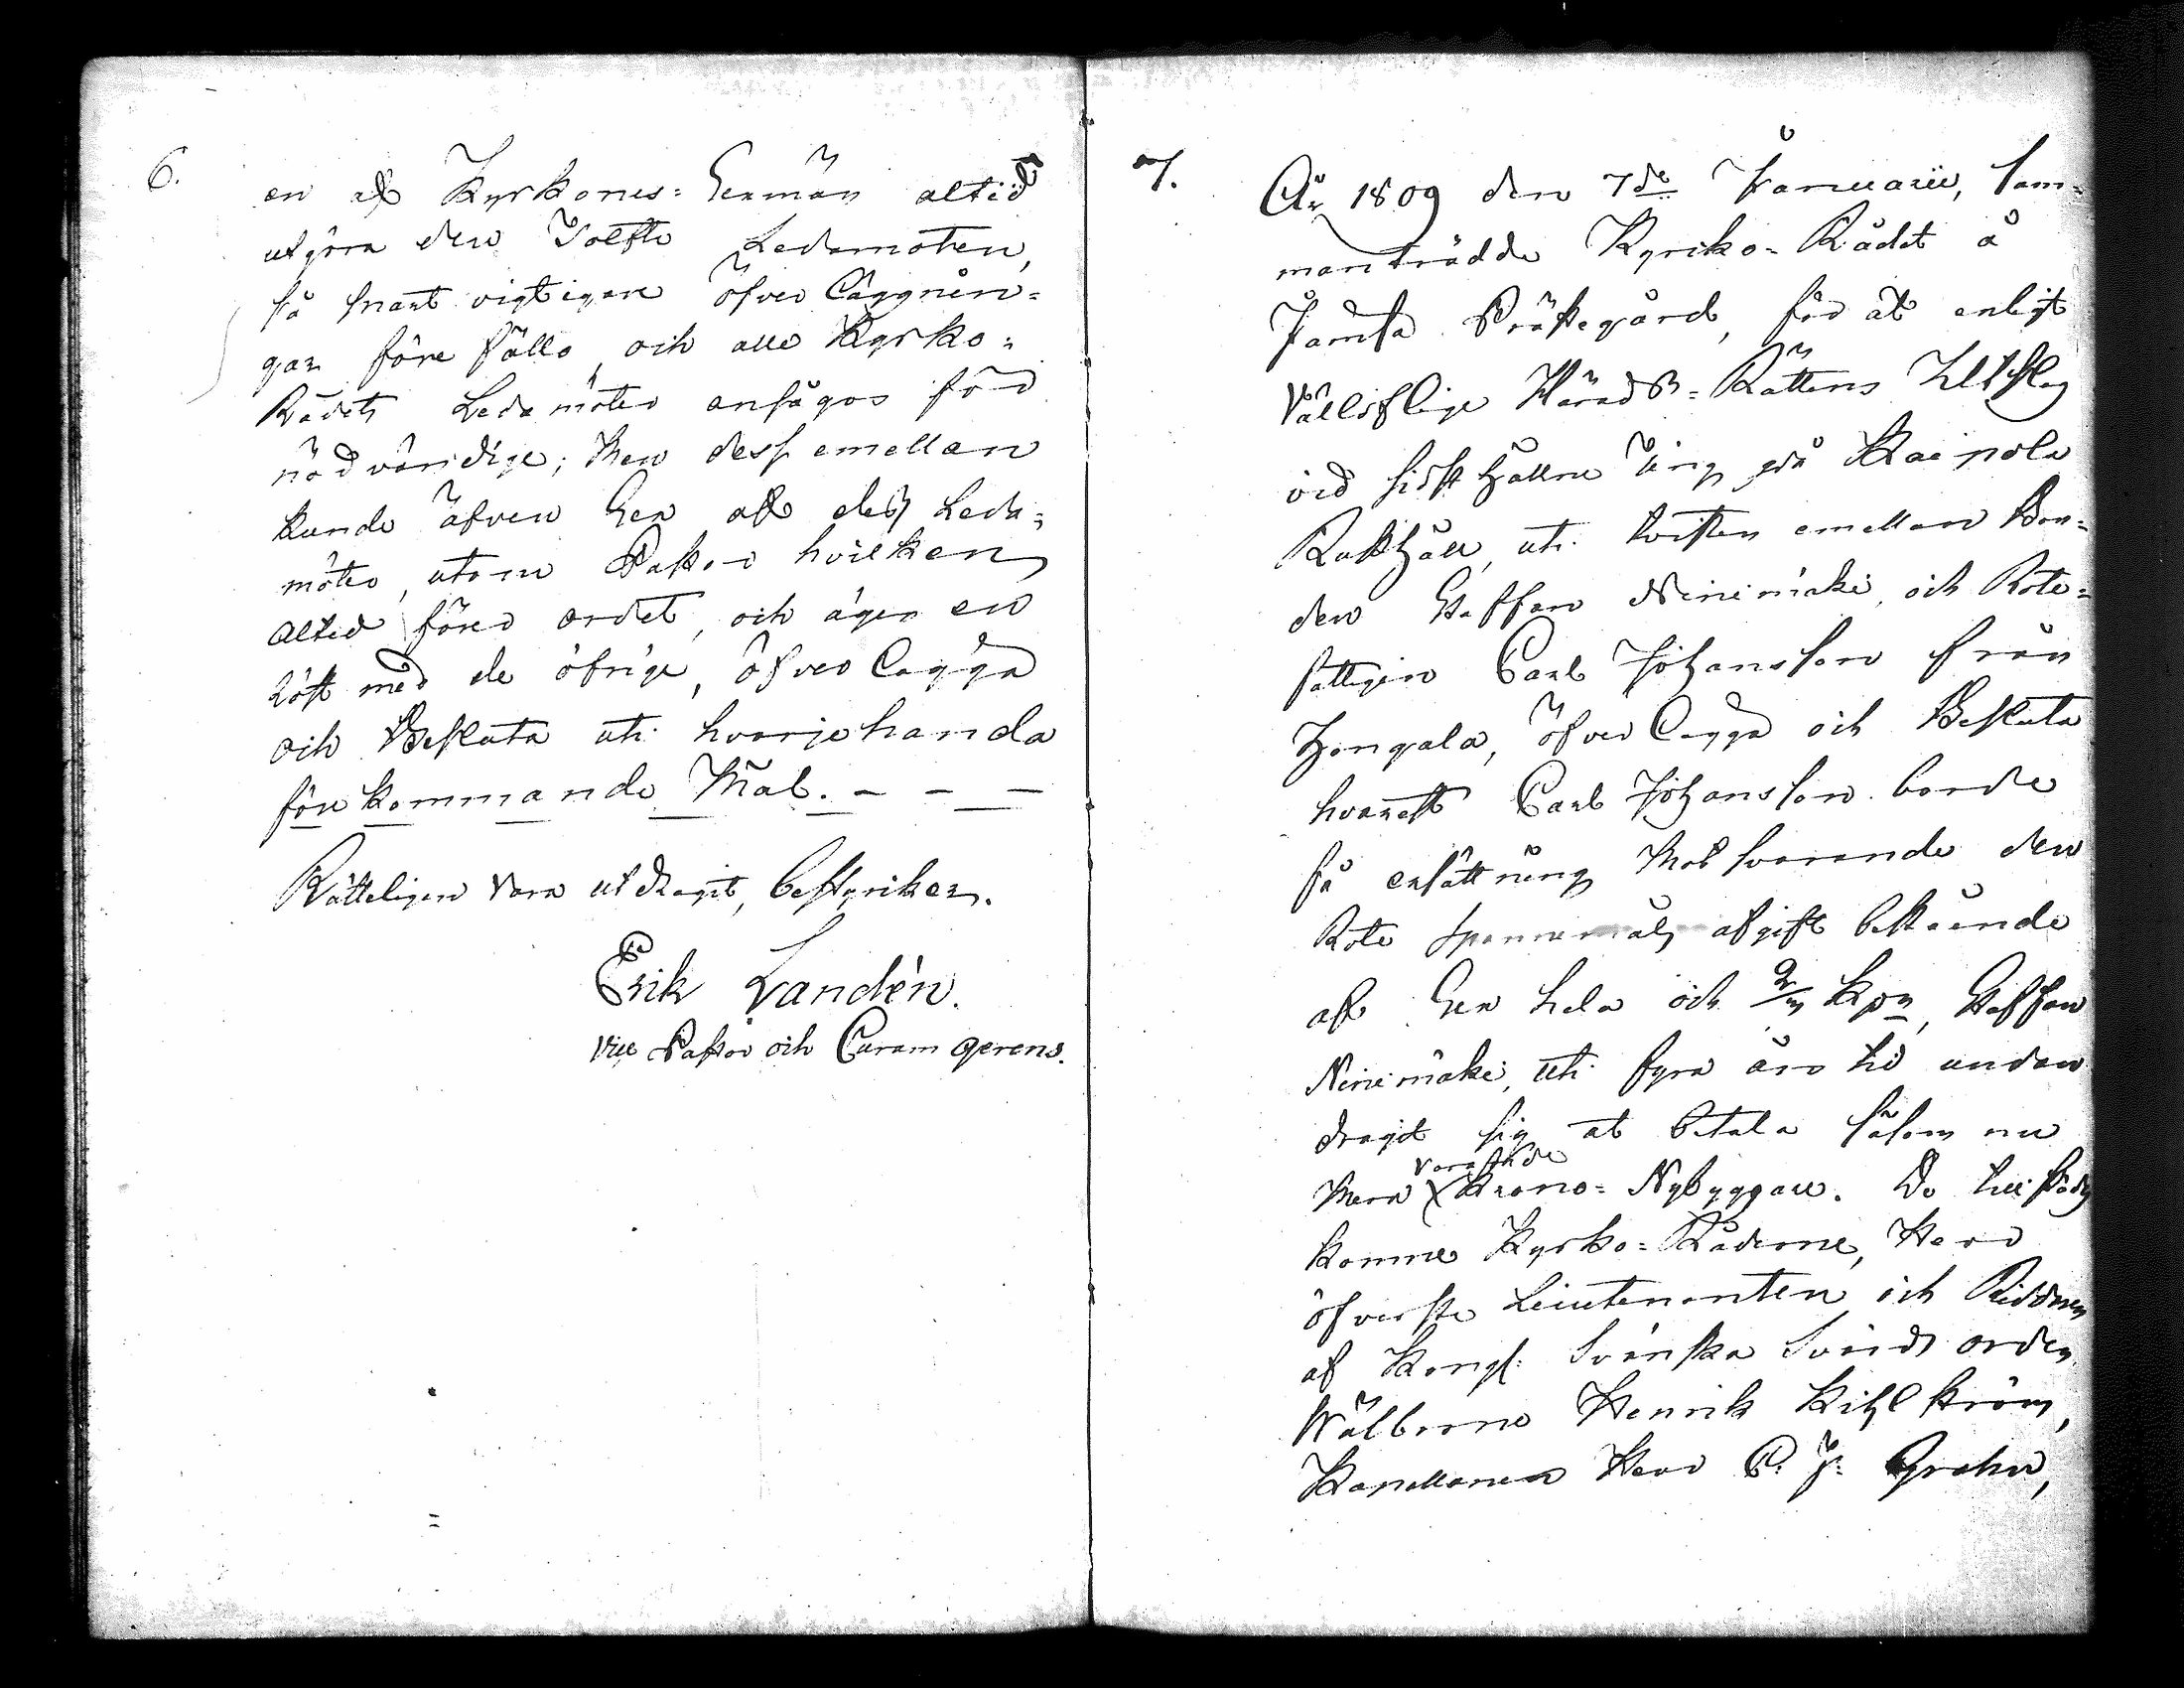 6.
en af Kyrkones=Sexmän altid
utgöra den Tolfte Ledamoten,
så snart vigtigare Öfver Läggnin=
gar före falla, och alla Kyrko=
Rådets Ledamöter ansågos för
nödvändige; Men dess emellan
kunde äfven Sex af dess Leda=
möter, utom Pastor hvilken
altid förer ordet, och äger en
röst med de öfrige, öfver Lägga
och Besluta uti hvarjehanda
förekommande Mål. - - -
Rätteligen vara utdragit, bestyrker.
Erik Landén.
Vice Pastor och Curam gerens.
7.
År 1809 den 7de Januarii, Sam=
manträdde Kyrko=Rådet å
Jämsä Prästegård, för at enligt
Vällofliga Härads=Rättens Utslag
vid sidst hållne Ting på Kaipola
Rusthåll, uti tvisten emellan Bon=
den Staffan Niinimäki, och Rote=
fattigen Carl Johansson från
Hongala, öfver Lägga och Besluta
hvarest Carl Johansson borde
få ersättning Motsvarande den
Rote Spannemåls afgift bestående
af Sex hela och 2/3 Kpr, Staffan
Niinimäki, uti fyra års tid undan
dragit sig at betala såsom nu
Mera varande Krono=Nybyggare. Då tillstädes
komne Kyrko=Råderne, Herr
öfverste Lieutenanten och Riddaren
af Kongl: Svenska Svärds orden
Wälborne Henrik Kihlström,
Kapellanen Herr C. J: Grahn,